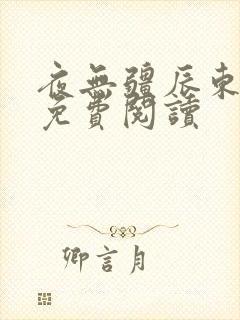 夜無疆辰東
免費閱讀
卿言月